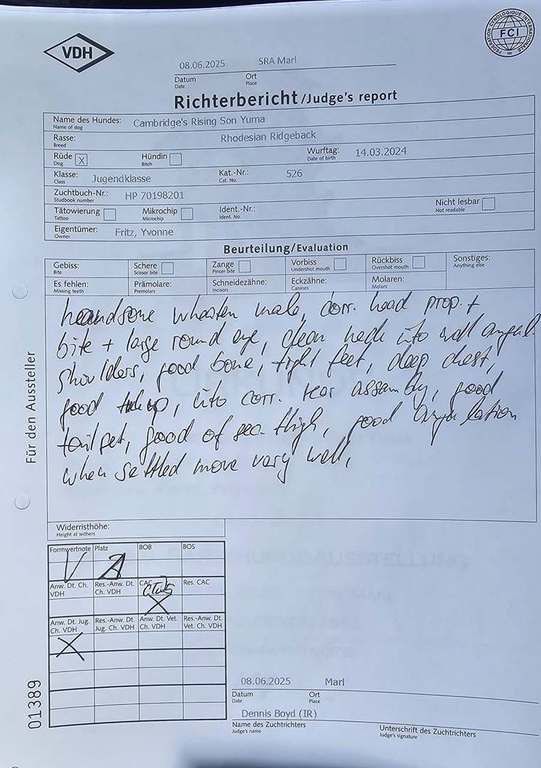 VDH
FCI
FEDERATION CYNOLOGIQUE INTERNATIONALE
08.06.2025 SRA Marl
Datum Ort
Date Place
Richterbericht/Judge's report
Name des Hundes: Cambridge's Rising Son Yuma
Name of dog
Rasse: Rhodesian Ridgeback
Breed
Rüde X Hündin Wurftag: 14.03.2024
Dog Bitch Date of birth
Klasse: Jugendklasse Kat.-Nr.: 526
Class Cat. No.
Zuchtbuch-Nr.: HP 70198201
Studbook number
Nicht lesbar
Not readable
Tätowierung Mikrochip Ident.-Nr.:
Tattoo Microchip Ident. No.
Eigentümer: Fritz, Yvonne
Owner
Beurteilung/Evaluation
Gebiss: Schere Zange Vorbiss Rückbiss Sonstiges:
Bite Scissor bite Pincer bite Undershot mouth Overshot mouth Anything else
Es fehlen: Prämolare: Schneidezähne: Eckzähne: Molaren:
Missing teeth Premolars Incisors Canines Molars
handsone wheaten male, corr. head prop. +
bite + large round eye, clean neck into well angul.
shoulders, good bone, tight feet, deep chest,
good tuck up, into corr. rear assambly, good
tailset, good of sec. thigh, good angulation
when settled move very well,
Für den Aussteller
Widerristhöhe:
Height at withers
Formwertnote Platz BOB BOS
V 1
Anw. Dt. Ch. VDH Res.-Anw. Dt. Ch. VDH CAC Res. CAC
Club
X
Anw. Dt. Jug. Ch. VDH Res.-Anw. Dt. Jug. Ch. VDH Anw. Dt. Vet. Ch. VDH Res.-Anw. Dt. Vet. Ch. VDH
X
01389
08.06.2025 Marl
Datum Ort
Date Place
Dennis Boyd (IR)
Name des Zuchtrichters Unterschrift des Zuchtrichters
Judge's name Judge's signature